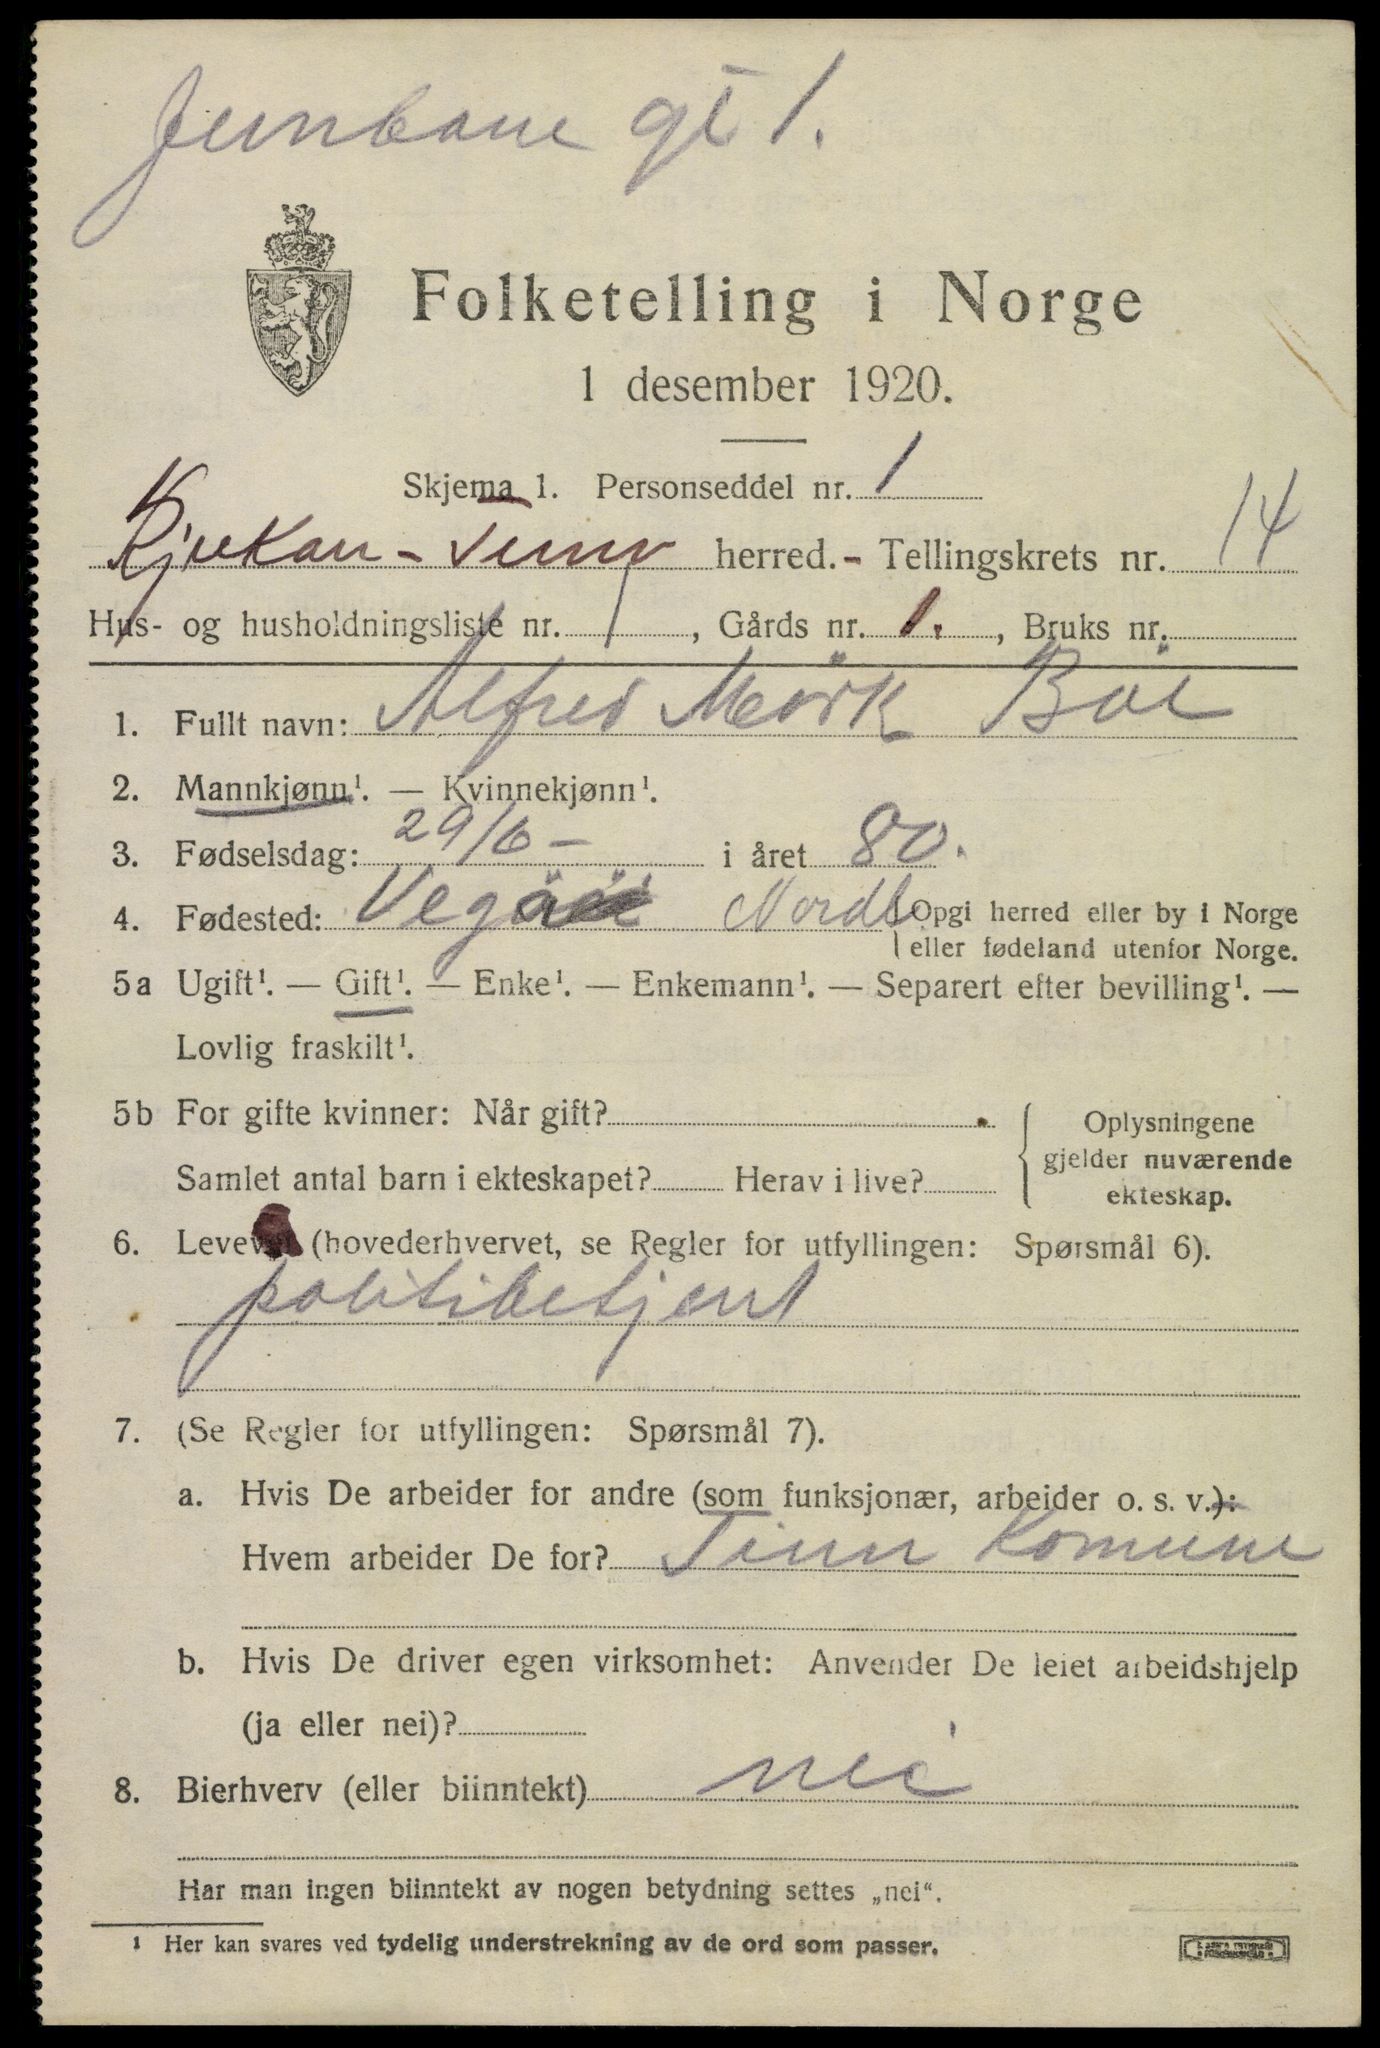 Jernbane gt 1.
Folketelling i Norge
1 desember 1920.
Skjema 1. Personseddel nr. 1
Rjukan - Tinn herred. - Tellingskrets nr. 14
Hus- og husholdningsliste nr. 1, Gårds nr. 1., Bruks nr.
1. Fullt navn: Alfred Mörk Böe
2. Mannkjønn¹. — Kvinnekjønn¹.
3. Fødselsdag: 29/6 - i året 80.
4. Fødested: Vega Nordl. Opgi herred eller by i Norge
eller fødeland utenfor Norge.
5a Ugift¹. — Gift¹. — Enke¹. — Enkemann¹. — Separert efter bevilling¹. —
Lovlig fraskilt¹.
5b For gifte kvinner: Når gift?
Samlet antal barn i ekteskapet? Herav i live?
Oplysningene
gjelder nuværende
ekteskap.
6. Levevei (hovederhvervet, se Regler for utfyllingen: Spørsmål 6).
politibetjent
7. (Se Regler for utfyllingen: Spørsmål 7).
a. Hvis De arbeider for andre (som funksjonær, arbeider o. s. v.):
Hvem arbeider De for? Tinn Komune
b. Hvis De driver egen virksomhet: Anvender De leiet arbeidshjelp
(ja eller nei)?
8. Bierhverv (eller biinntekt) nei
Har man ingen biinntekt av nogen betydning settes „nei“.
¹ Her kan svares ved tydelig understrekning av de ord som passer.